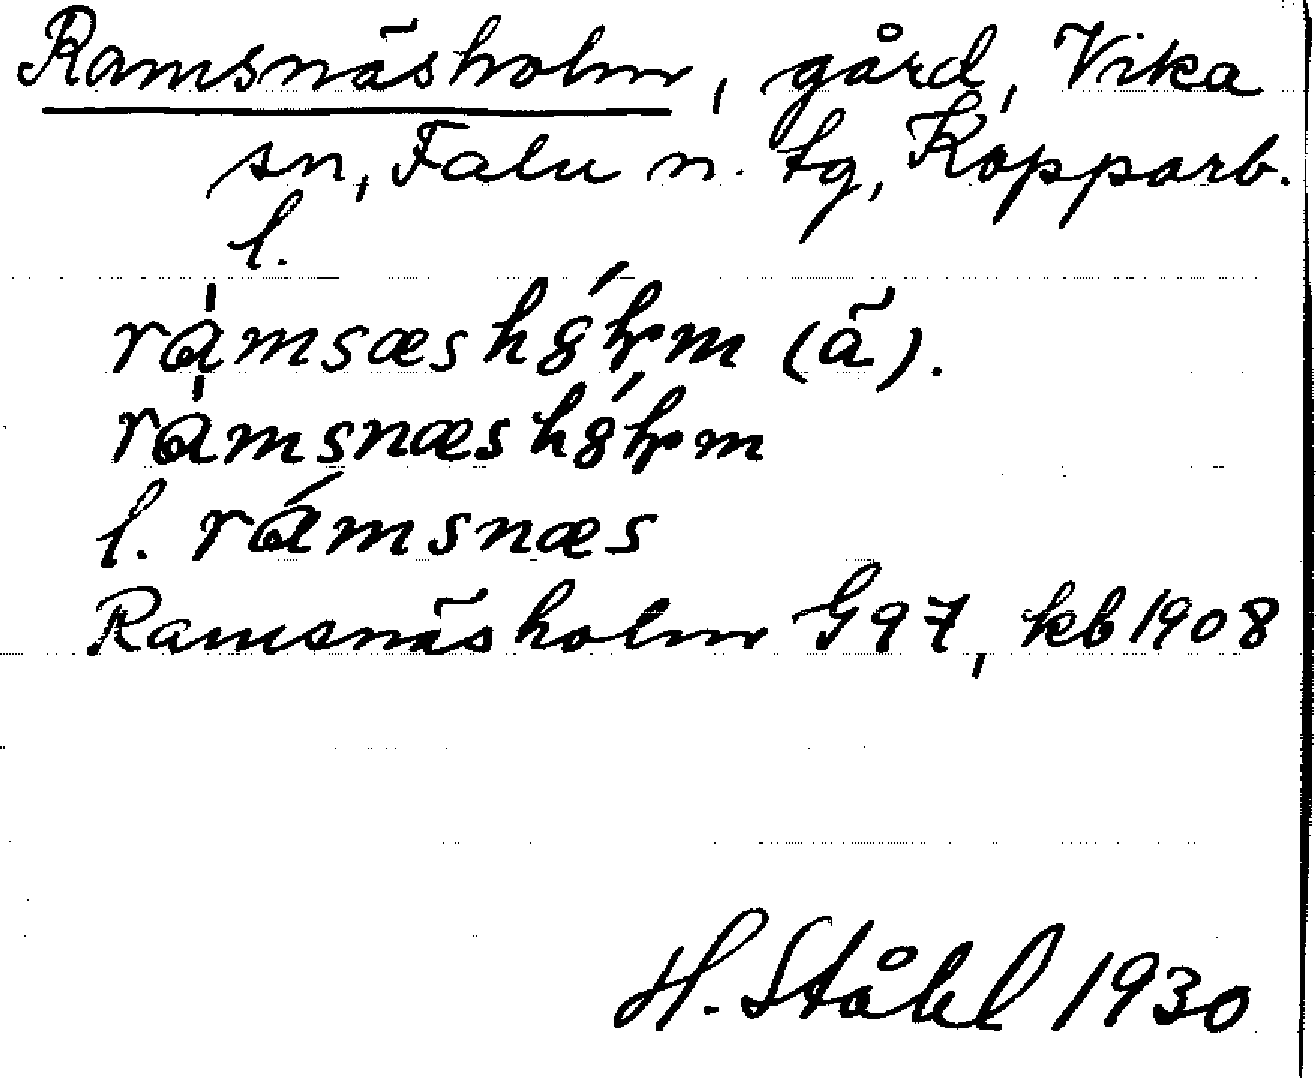 Ramsnäsholm, gård, Vika
sn, Falu n. tg, Kopparb.
l.
ràmsæshólm (ä).
ràmsnæshólm
l. rámsnæs
Ramsnäsholm G97, kb 1908
H. Ståhl 1930